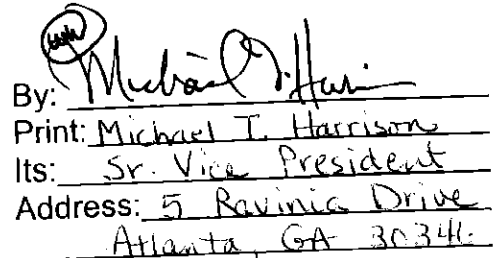 By: Michael T. Harrison
Print: Michael T. Harrison
Its: Sr. Vice President
Address: 5 Ravinia Drive
Atlanta, GA 30346